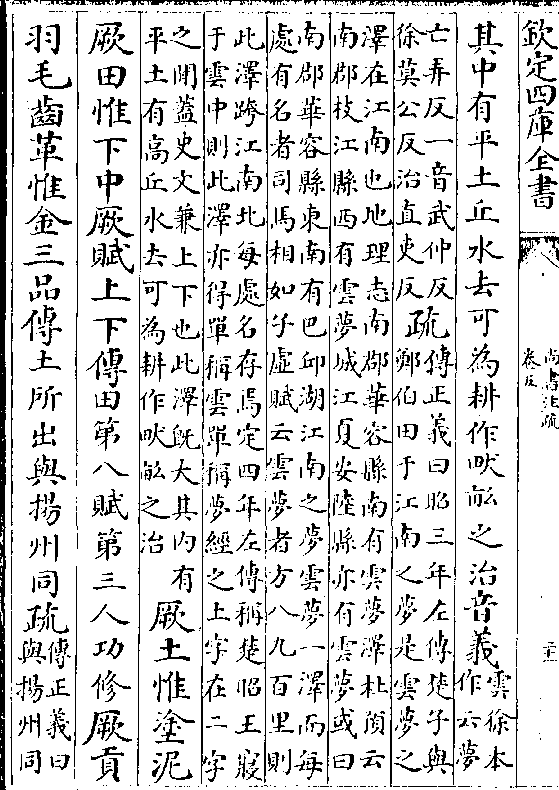 欽定四庫全書
尚書注疏
卷五
其中有平土丘水去可為耕作畎畝之治音義雲徐本
作云夢
亡弄反一音武仲反
徐莫公反治直吏反
疏傳正義曰昭三年左傳楚子與
鄭伯田于江南之夢是雲夢之
澤在江南也地理志南郡華容縣南有雲夢澤杜預云
南郡枝江縣西有雲夢城江夏安陸縣亦有雲夢或曰
南郡華容縣東南有巴邱湖江南之夢雲夢一澤而每
處有名者司馬相如子虛賦云雲夢者方八九百里則
此澤跨江南北每處名存焉定四年左傳稱楚昭王寢
于雲中則此澤亦得單稱雲單稱夢經之上字在二字
之閒蓋史文兼上下也此澤既大其內有
平土有高丘水去可為耕作畎畝之治
厥土惟塗泥
厥田惟下中厥賦上下傳田第八賦第三人功修厥貢
羽毛齒革惟金三品傳土所出與揚州同疏傳正義曰
與揚州同